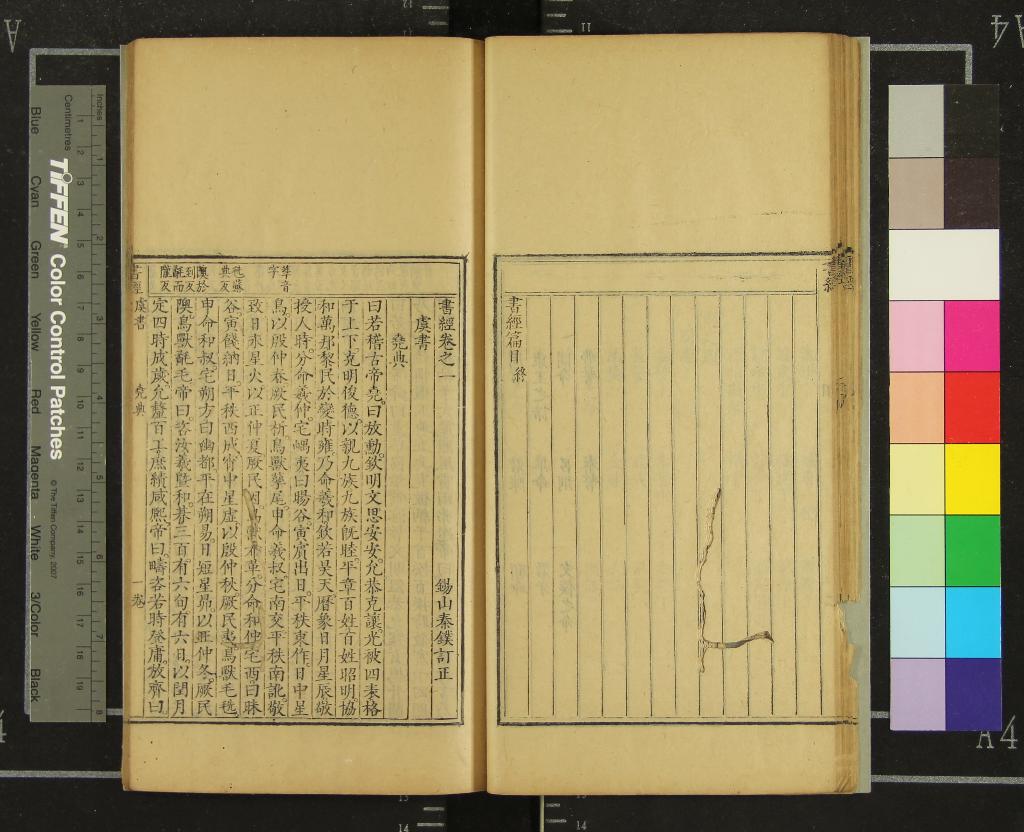 書經篇目終
書經卷之一
錫山秦鏷訂正
虞書
堯典
曰若稽古帝堯曰放勳欽明文思安安允恭克讓光被四表格
于上下克明俊德以親九族九族既睦平章百姓百姓昭明協
和萬邦黎民於變時雍乃命羲和欽若昊天曆象日月星辰敬
授人時分命羲仲宅嵎夷曰暘谷寅賓出日平秩東作日中星
鳥以殷仲春厥民析鳥獸孳尾申命羲叔宅南交平秩南訛敬
致日永星火以正仲夏厥民因鳥獸希革分命和仲宅西曰昧
谷寅餞納日平秩西成宵中星虛以殷仲秋厥民夷鳥獸毛毨
申命和叔宅朔方曰幽都平在朔易日短星昴以正仲冬厥民
隩鳥獸氄毛帝曰咨汝羲暨和朞三百有六旬有六日以閏月
定四時成歲允釐百工庶績咸熙帝曰疇咨若時登庸放齊曰
孳音
字
毨蘇
典反
隩於
到反
氄而
隴反
書經
虞書
堯典
一卷
TIFFEN Color Control Patches
© The Tiffen Company, 2007
Inches
Centimetres
Blue
Cyan
Green
Yellow
Red
Magenta
White
3/Color
Black
A4